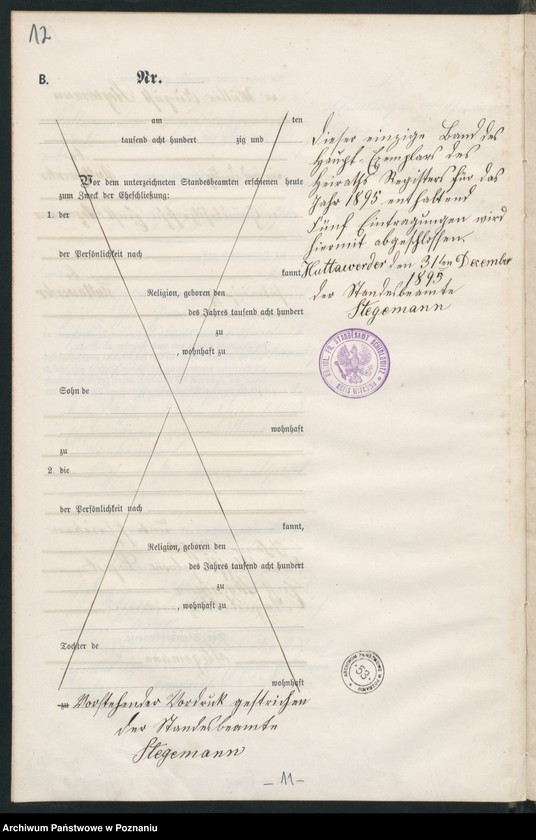 12
B.
Nr.
am ten
tausend acht hundert zig und
Vor dem unterzeichneten Standesbeamten erschienen heute
zum Zweck der Eheschließung:
1. der
der Persönlichkeit nach
kannt,
Religion, geboren den
des Jahres tausend acht hundert
zu
, wohnhaft zu
Sohn de
wohnhaft
zu
2. die
der Persönlichkeit nach
kannt,
Religion, geboren den
des Jahres tausend acht hundert
zu
, wohnhaft zu
Tochter de
wohnhaft
zu Vorstehender Vordruck gestrichen
der Standesbeamte
Stegemann
Dieser einzige Band des
Haupt-Exemplars des
Heiraths Registers für das
Jahr 1895 enthaltend
Fünf Eintragungen wird
hiermit abgeschlossen.
Huttawerder den 31ten December
1895
der Standesbeamte
Stegemann
STANDESAMT
ARCHIWUM PAŃSTWOWE W POZNANIU
53
- 11 -
Archiwum Państwowe w Poznaniu